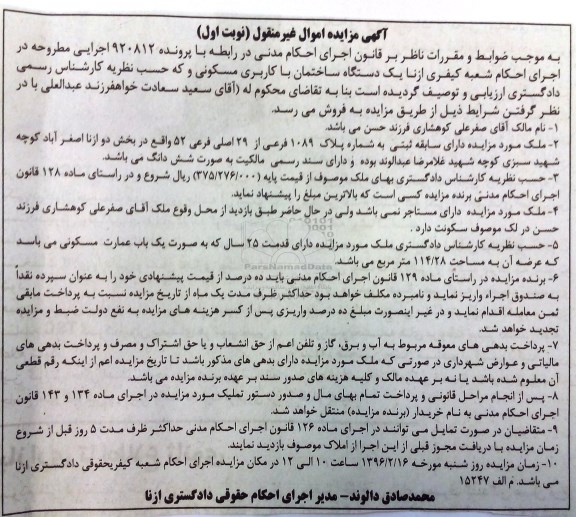 آگهی مزایده اموال غیرمنقول (نوبت اول)
به موجب ضوابط و مقررات ناظر بر قانون اجرای احکام مدنی در رابطه با پرونده ۹۲۰۸۱۲ اجرایی مطروحه در
اجرای احکام شعبه کیفری ازنا یک دستگاه ساختمان با کاربری مسکونی و که حسب نظریه کارشناس رسمی
دادگستری ارزیابی و توصیف گردیده است بنا به تقاضای محکوم له (آقای سعید سعادت خواهفرزند عبدالعلی با در
نظر گرفتن شرایط ذیل از طریق مزایده به فروش می رسد.
۱- نام مالک آقای صفرعلی کوهشاری فرزند حسن می باشد.
۲- ملک مورد مزایده دارای سابقه ثبتی به شماره پلاک ۱۰۸۹ فرعی از ۲۹ اصلی فرعی ۵۲ واقع در بخش دو ازنا اصغر آباد کوچه
شهید سبزی کوچه شهید غلامرضا عبدالوند بوده و دارای سند رسمی مالکیت به صورت شش دانگ می باشد.
۳- حسب نظریه کارشناس دادگستری بهای ملک موصوف از قیمت پایه (۳۷۵/۲۷۶/۰۰۰) ریال شروع و در راستای ماده ۱۲۸ قانون
اجرای احکام مدنی برنده مزایده کسی است که بالاترین مبلغ را پیشنهاد نماید.
۴- ملک مورد مزایده دارای مستاجر نمی باشد ولی در حال حاضر طبق بازدید از محل وقوع ملک آقای صفرعلی کوهشاری فرزند
حسن در لک موصوف سکونت دارد.
۵- حسب نظریه کارشناس دادگستری ملک مورد مزایده دارای قدمت ۲۵ سال که به صورت یک باب عمارت مسکونی می باسد
که عرضه آن به مساحت ۱۱۴/۲۸ متر مربع می باشد.
۶- برنده مزایده در راستای ماده ۱۲۹ قانون اجرای احکام مدنی باید ده درصد از قیمت پیشنهادی خود را به عنوان سپرده نقداً
به صندوق اجراء واریز نماید و نامبرده مکلف خواهد بود حداکثر ظرف مدت یک ماه از تاریخ مزایده نسبت به پرداخت مابقی
ثمن معامله اقدام نماید و در غیر اینصورت مبلغ ده درصد واریزی پس از کسر هزینه های مزایده به نفع دولت ضبط و مزایده
تجدید خواهد شد.
۷- پرداخت بدهی های معوقه مربوط به آب و برق، گاز و تلفن اعم از حق انشعاب و یا حق اشتراک و مصرف و پرداخت بدهی های
مالیاتی و عوارض شهرداری در صورتی که ملک مورد مزایده دارای بدهی های مذکور باشد تا تاریخ مزایده اعم از اینکه رقم قطعی
آن معلوم شده باشد یا نه بر عهده مالک و کلیه هزینه های صدور سند بر عهده برنده مزایده می باشد.
۸- پس از انجام مراحل قانونی و پرداخت تمام بهای مال و صدور دستور تملیک مورد مزایده در اجرای ماده ۱۳۴ و ۱۴۳ قانون
اجرای احکام مدنی به نام خریدار (برنده مزایده) منتقل خواهد شد.
۹- متقاضیان در صورت تمایل می توانند در اجرای ماده ۱۲۶ قانون اجرای احکام مدنی حداکثر ظرف مدت ۵ روز قبل از شروع
زمان مزایده با دریافت مجوز قبلی از این اجرا از املاک موصوف بازدید نمایند.
۱۰- زمان مزایده روز شنبه مورخه ۱۳۹۶/۲/۱۶ ساعت ۱۰ الی ۱۲ در مکان مزایده اجرای احکام شعبه کیفریحقوقی دادگستری ازنا
می باشد. م الف ۱۵۲۴۷
محمدصادق دالوند- مدیر اجرای احکام حقوقی دادگستری ازنا